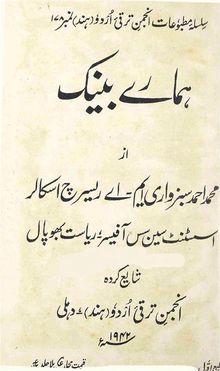 سلسلۂ مطبوعات انجمن ترقیٔ اُردو (ہند) نمبر ۱۷۸
ہمارے بینک
از
محمد احمد سبزواری ایم-اے ریسرچ اسکالر
اسسٹنٹ سین سس آفیسر، ریاست بھوپال
شایع کردہ
انجمن ترقی اُردو (ہند)، دہلی
۱۹۴۲ء
قیمت مجلد بلا جلد